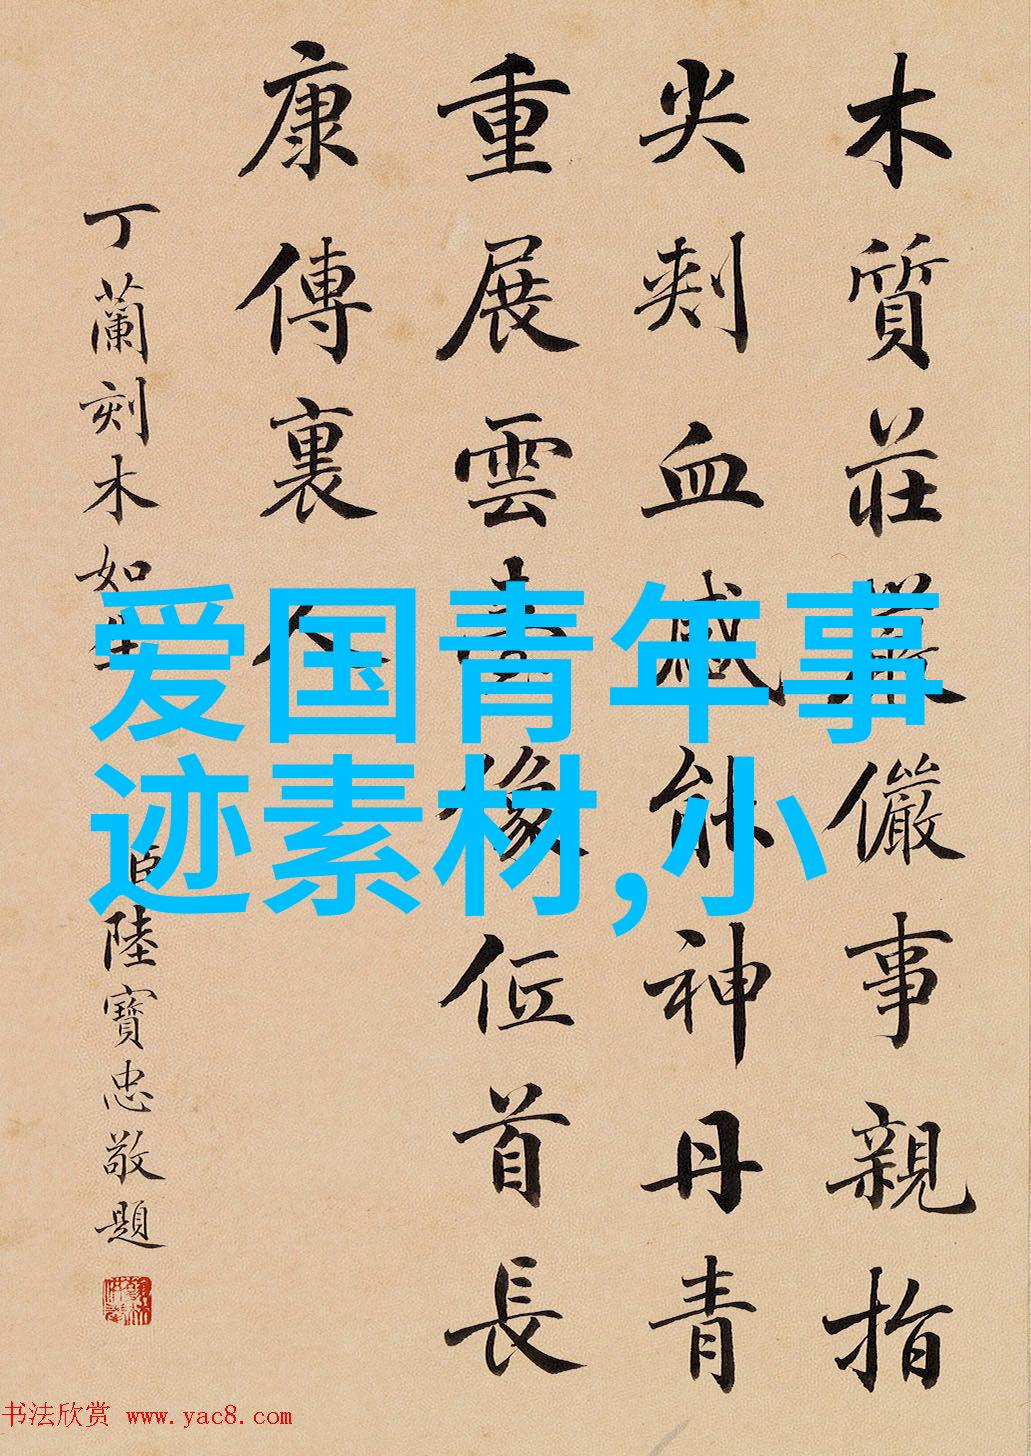 木質莊嚴儼事親指
尖刾血感能神丹青
重展雲臺像伍首長
康傳裏人
丁蘭刻木如生
臣陸寶忠敬題
爱国青年事
迹素材,小
书法欣赏 www.yac8.com